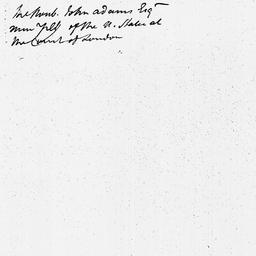 The Honb. John Adams Esqr
Min Pl of the U. States at
the Court of London